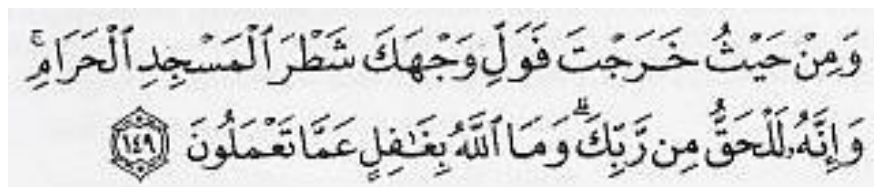 وَمِنْ حَيْثُ خَرَجْتَ فَوَلِّ وَجْهَكَ شَطْرَ ٱلْمَسْجِدِ ٱلْحَرَامِۖ
وَإِنَّهُۥ لَلْحَقُّ مِن رَّبِّكَۗ وَمَا ٱللَّهُ بِغَـٰفِلٍ عَمَّا تَعْمَلُونَ ١٤٩